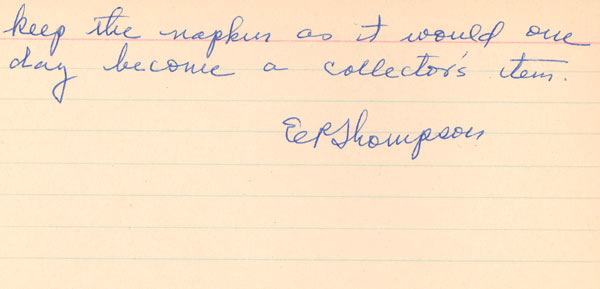 keep the napkin as it would one
day become a collector's item.
EPThompson